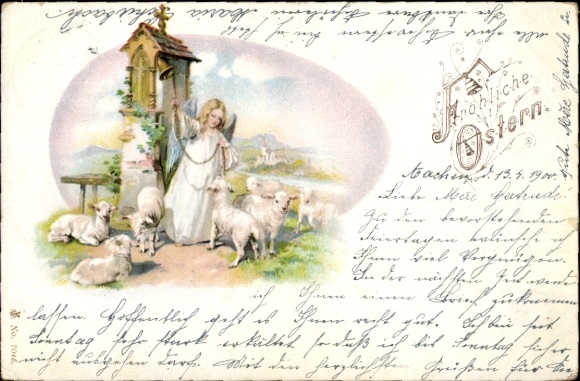 Fröhliche
Ostern.
Aachen, d. 13.4.1900.
Liebe Mère Gertrude!
Zu den bevorstehenden
Feiertagen wünsche ich
Ihnen viel Vergnügen.
In der nächsten Zeit werde
ich Ihnen einen Brief zukommen
lassen. Hoffentlich geht es Ihnen recht gut. Ich bin seit
Sonntag sehr stark erkältet so daß ich bis Sonntag sicher
nicht ausgehen darf. Mit den herzlichsten Grüßen für Sie
gute Mère Gertrude
alle
Ihre dankbare Maria
No. 7046.